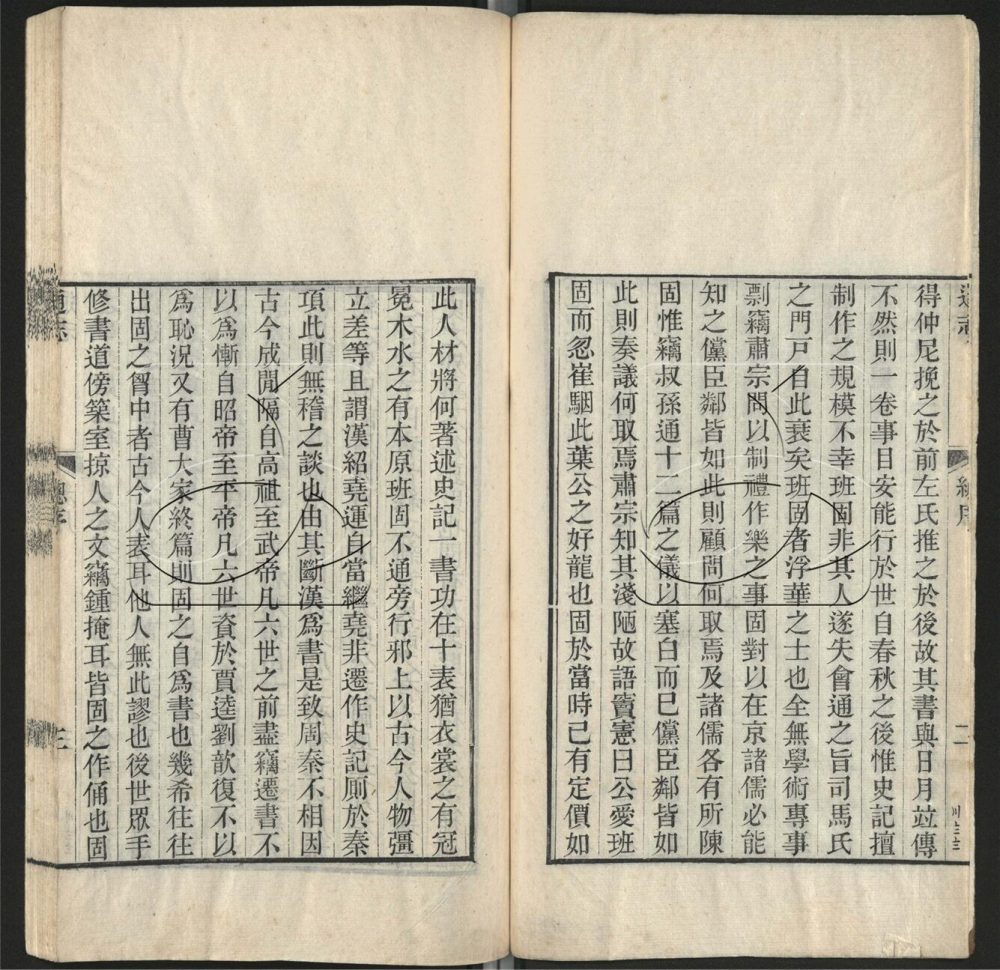 得仲尼挽之於前左氏推之於後故其書與日月竝傳
不然則一卷事目安能行於世自春秋之後惟史記擅
制作之規模不幸班固非其人遂失會通之旨司馬氏
之門戸自此衰矣班固者浮華之士也全無學術專事
剽竊肅宗問以制禮作樂之事固對以在京諸儒必能
知之儻臣鄰皆如此則顧問何取焉及諸儒各有所陳
固惟竊叔孫通十二篇之儀以塞白而已儻臣鄰皆如
此則奏議何取焉肅宗知其淺陋故語竇憲曰公愛班
固而忽崔駰此葉公之好龍也固於當時已有定價如
此人材將何著述史記一書功在十表猶衣裳之有冠
冕木水之有本原班固不通旁行邪上以古今人物彊
立差等且謂漢紹堯運自當繼堯非遷作史記厠於秦
項此則無稽之談也由其斷漢爲書是致周秦不相因
古今成閒隔自高祖至武帝凡六世之前盡竊遷書不
以爲慚自昭帝至平帝凡六世資於賈逵劉歆復不以
爲恥況又有曹大家終篇則固之自爲書也幾希往往
出固之胷中者古今人表耳他人無此謬也後世眾手
修書道傍築室掠人之文竊鍾掩耳皆固之作俑也固
通志
總序
二
三